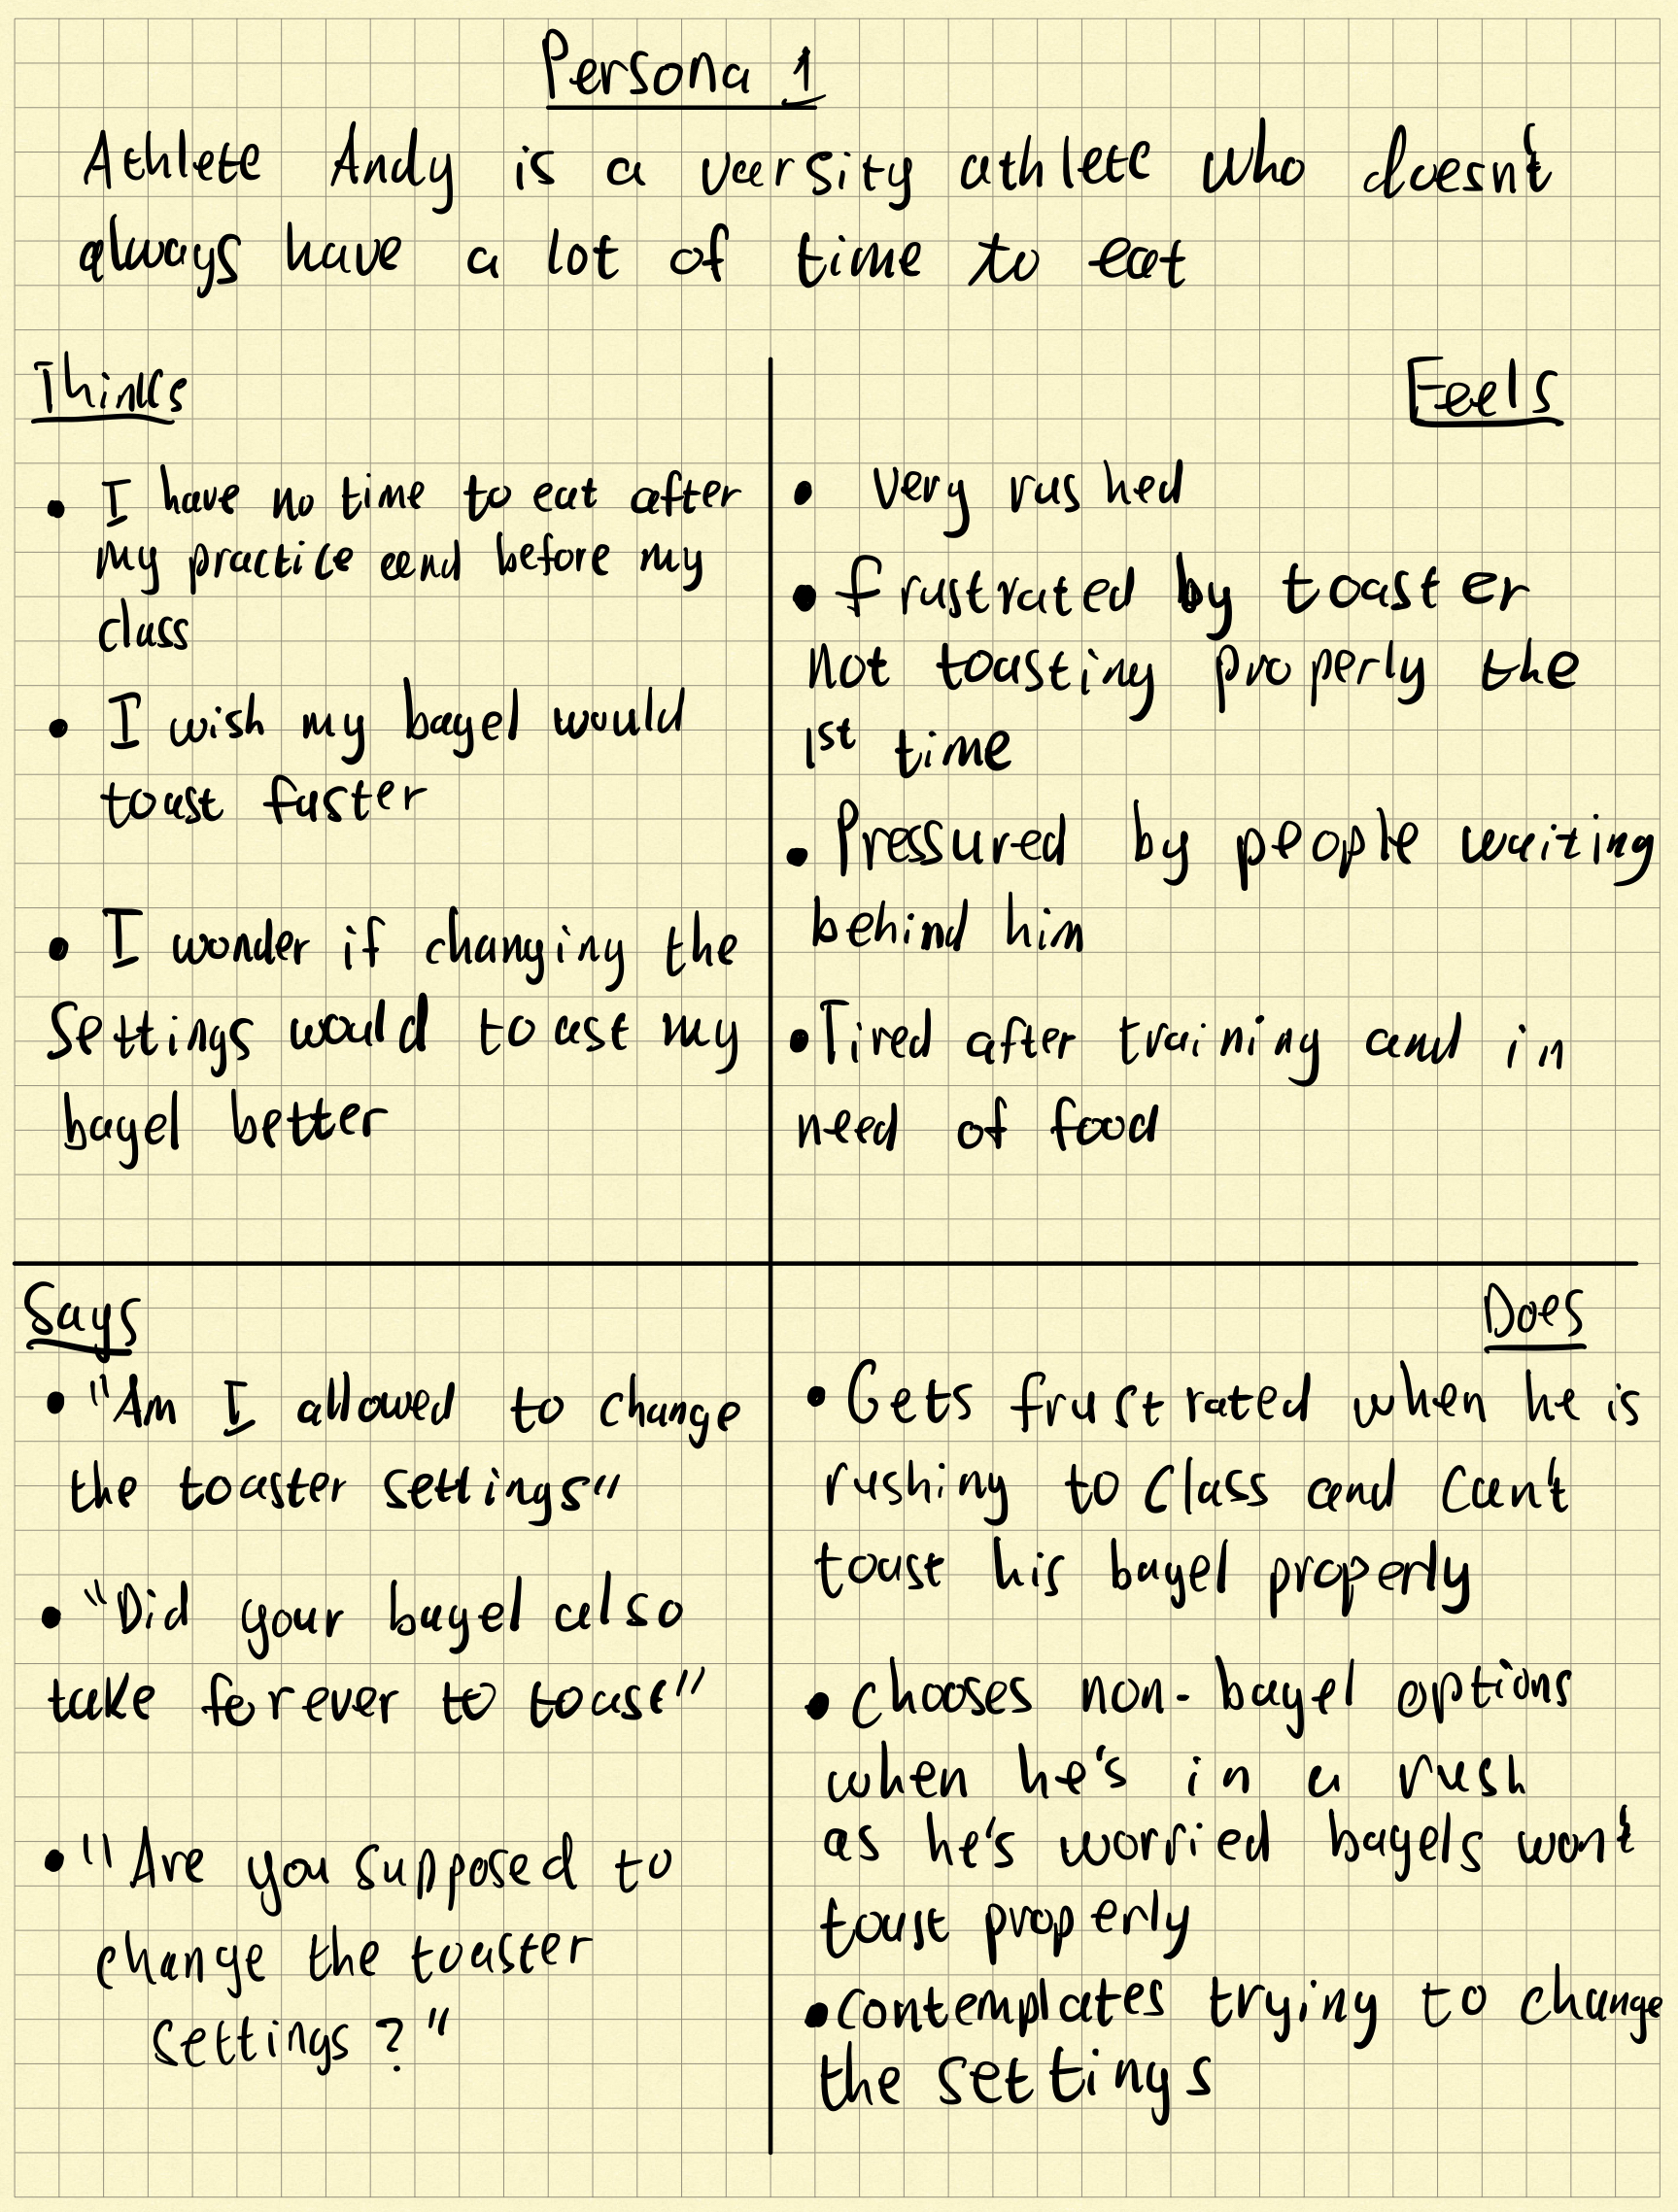 Persona 1
Athlete Andy is a varsity athlete who doesn't
always have a lot of time to eat
Thinks
• I have no time to eat after
my practice and before my
class
• I wish my bagel would
toast faster
• I wonder if changing the
settings would toast my
bagel better
Feels
• Very rushed
• frustrated by toaster
not toasting properly the
1st time
• Pressured by people waiting
behind him
• Tired after training and in
need of food
Says
• "Am I allowed to change
the toaster settings"
• "Did your bagel also
take forever to toast"
• "Are you supposed to
change the toaster
settings?"
Does
• Gets frustrated when he is
rushing to class and can't
toast his bagel properly
• chooses non-bagel options
when he's in a rush
as he's worried bagels won't
toast properly
• contemplates trying to change
the settings